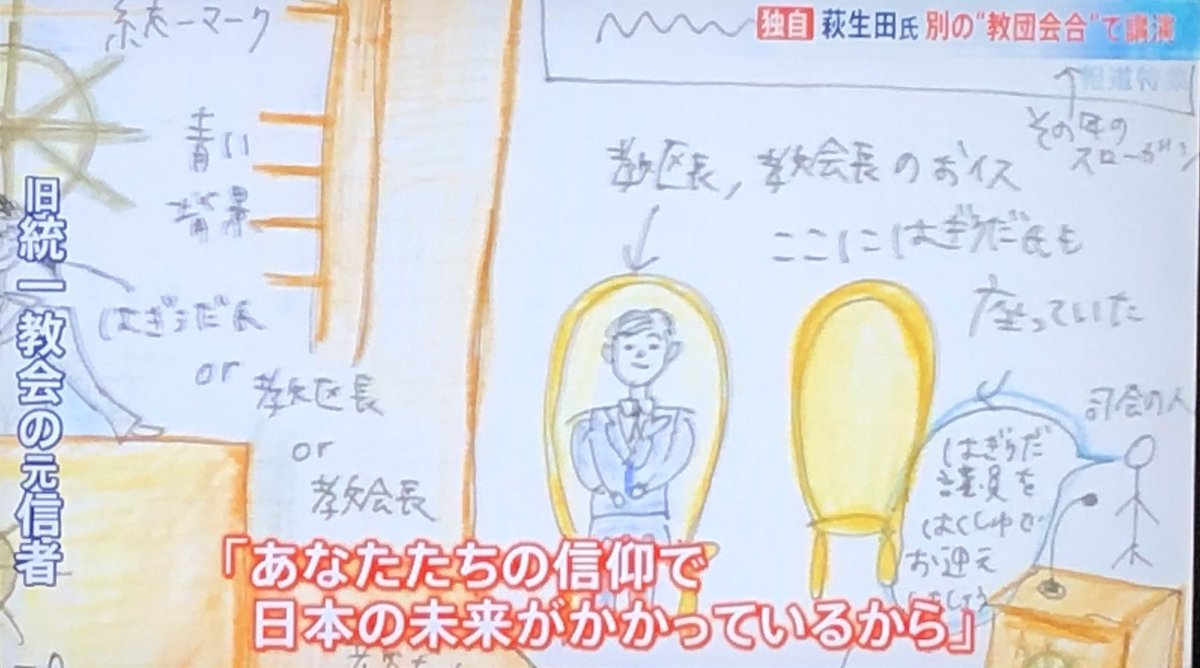 独自 萩生田氏 別の“教団会合”で講演
報道特集
統一マーク
青い
背景
はぎうだ氏
or 教区長
or
教会長
旧統一教会の元信者
その年の
スローガン
教区長，教会長のおイス
ここにはぎうだ氏も
座っていた
司会の人
はぎうだ
議員を
はくしゅで
お迎え
しましょう
「あなたたちの信仰で
日本の未来がかかっているから」